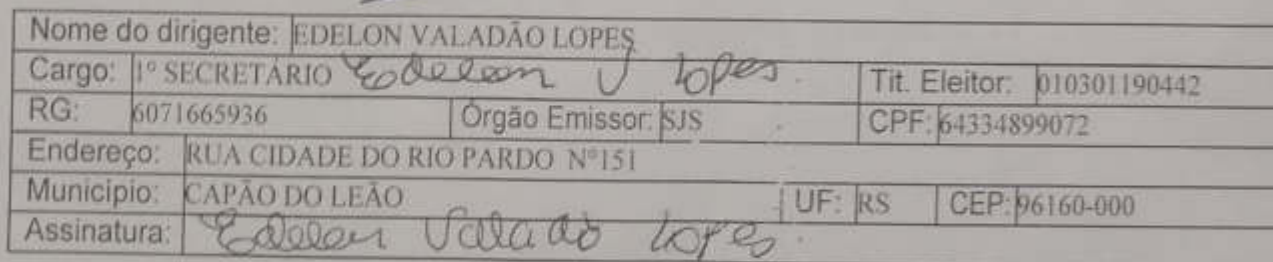 Nome do dirigente: EDELON VALADÃO LOPES
Cargo: 1º SECRETÁRIO Edelon V Lopes. Tit. Eleitor: 010301190442
RG: 6071665936 Órgão Emissor: SJS CPF: 64334899072
Endereço: RUA CIDADE DO RIO PARDO Nº151
Municipio: CAPÃO DO LEÃO UF: RS CEP: 96160-000
Assinatura: Edelon Valadão Lopes.